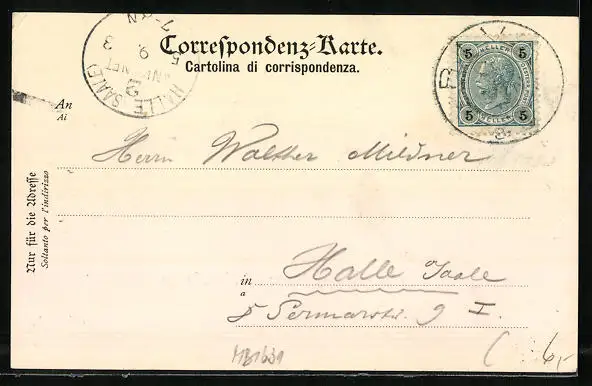 Correspondenz-Karte.
Cartolina di corrispondenza.
HALLE (SAALE)
2
5
HELLER
5
5
HELLER
5
An
Ai
Herrn Walther Mildner
Nur für die Adresse
Soltanto per l'indirizzo
in
a
Halle Saale
9 I.
MB1631
6,-